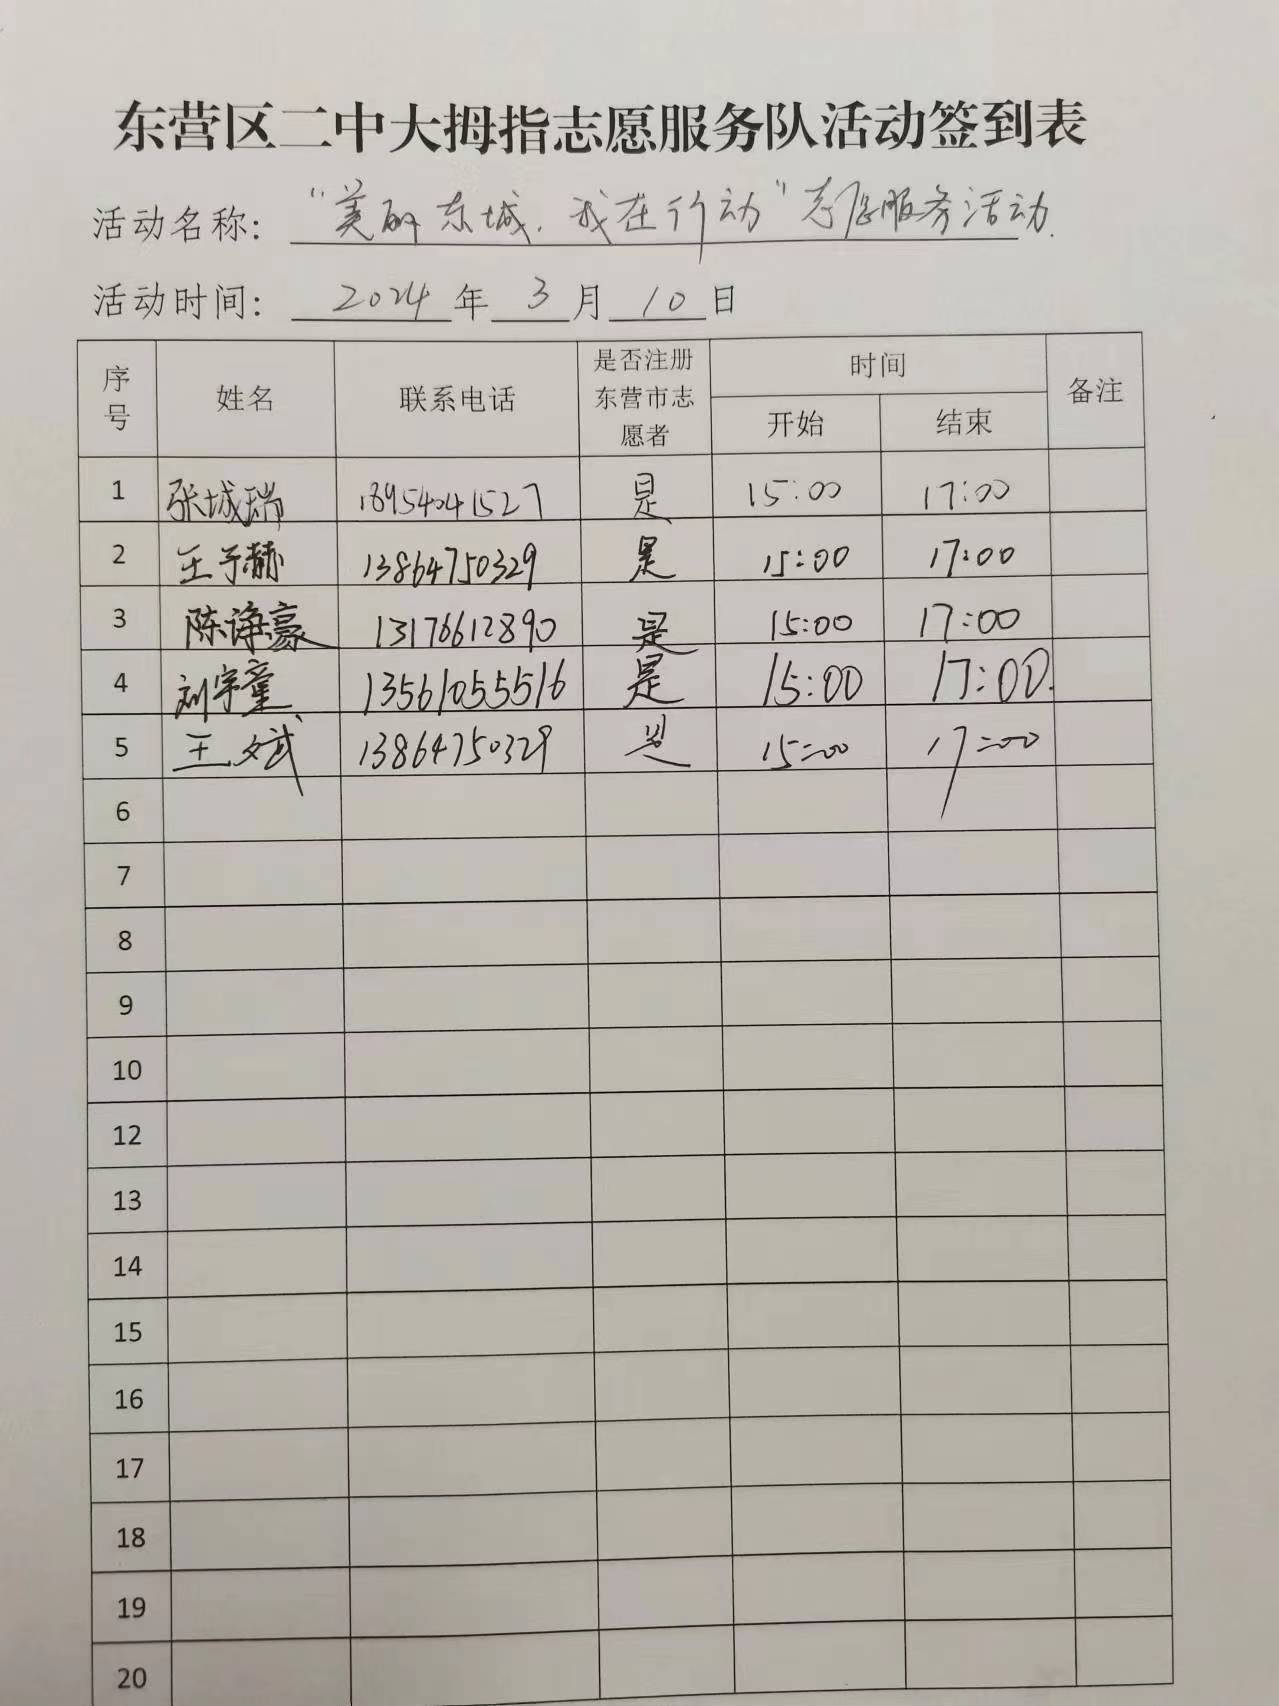 东营区二中大拇指志愿服务队活动签到表
活动名称: “美丽东城.我在行动”志愿服务活动.
活动时间: 2024年 3 月 10 日
序号 姓名 联系电话 是否注册东营市志愿者 时间 备注
开始 结束
1 张城瑞 18954041527 是 15:00 17:00
2 王子赫 13864750329 是 15:00 17:00
3 陈诤豪 13176612890 是 15:00 17:00
4 刘宇童 13561055516 是 15:00 17:00.
5 王斌 13864750329 是 15:00 17:00
6
7
8
9
10
12
13
14
15
16
17
18
19
20